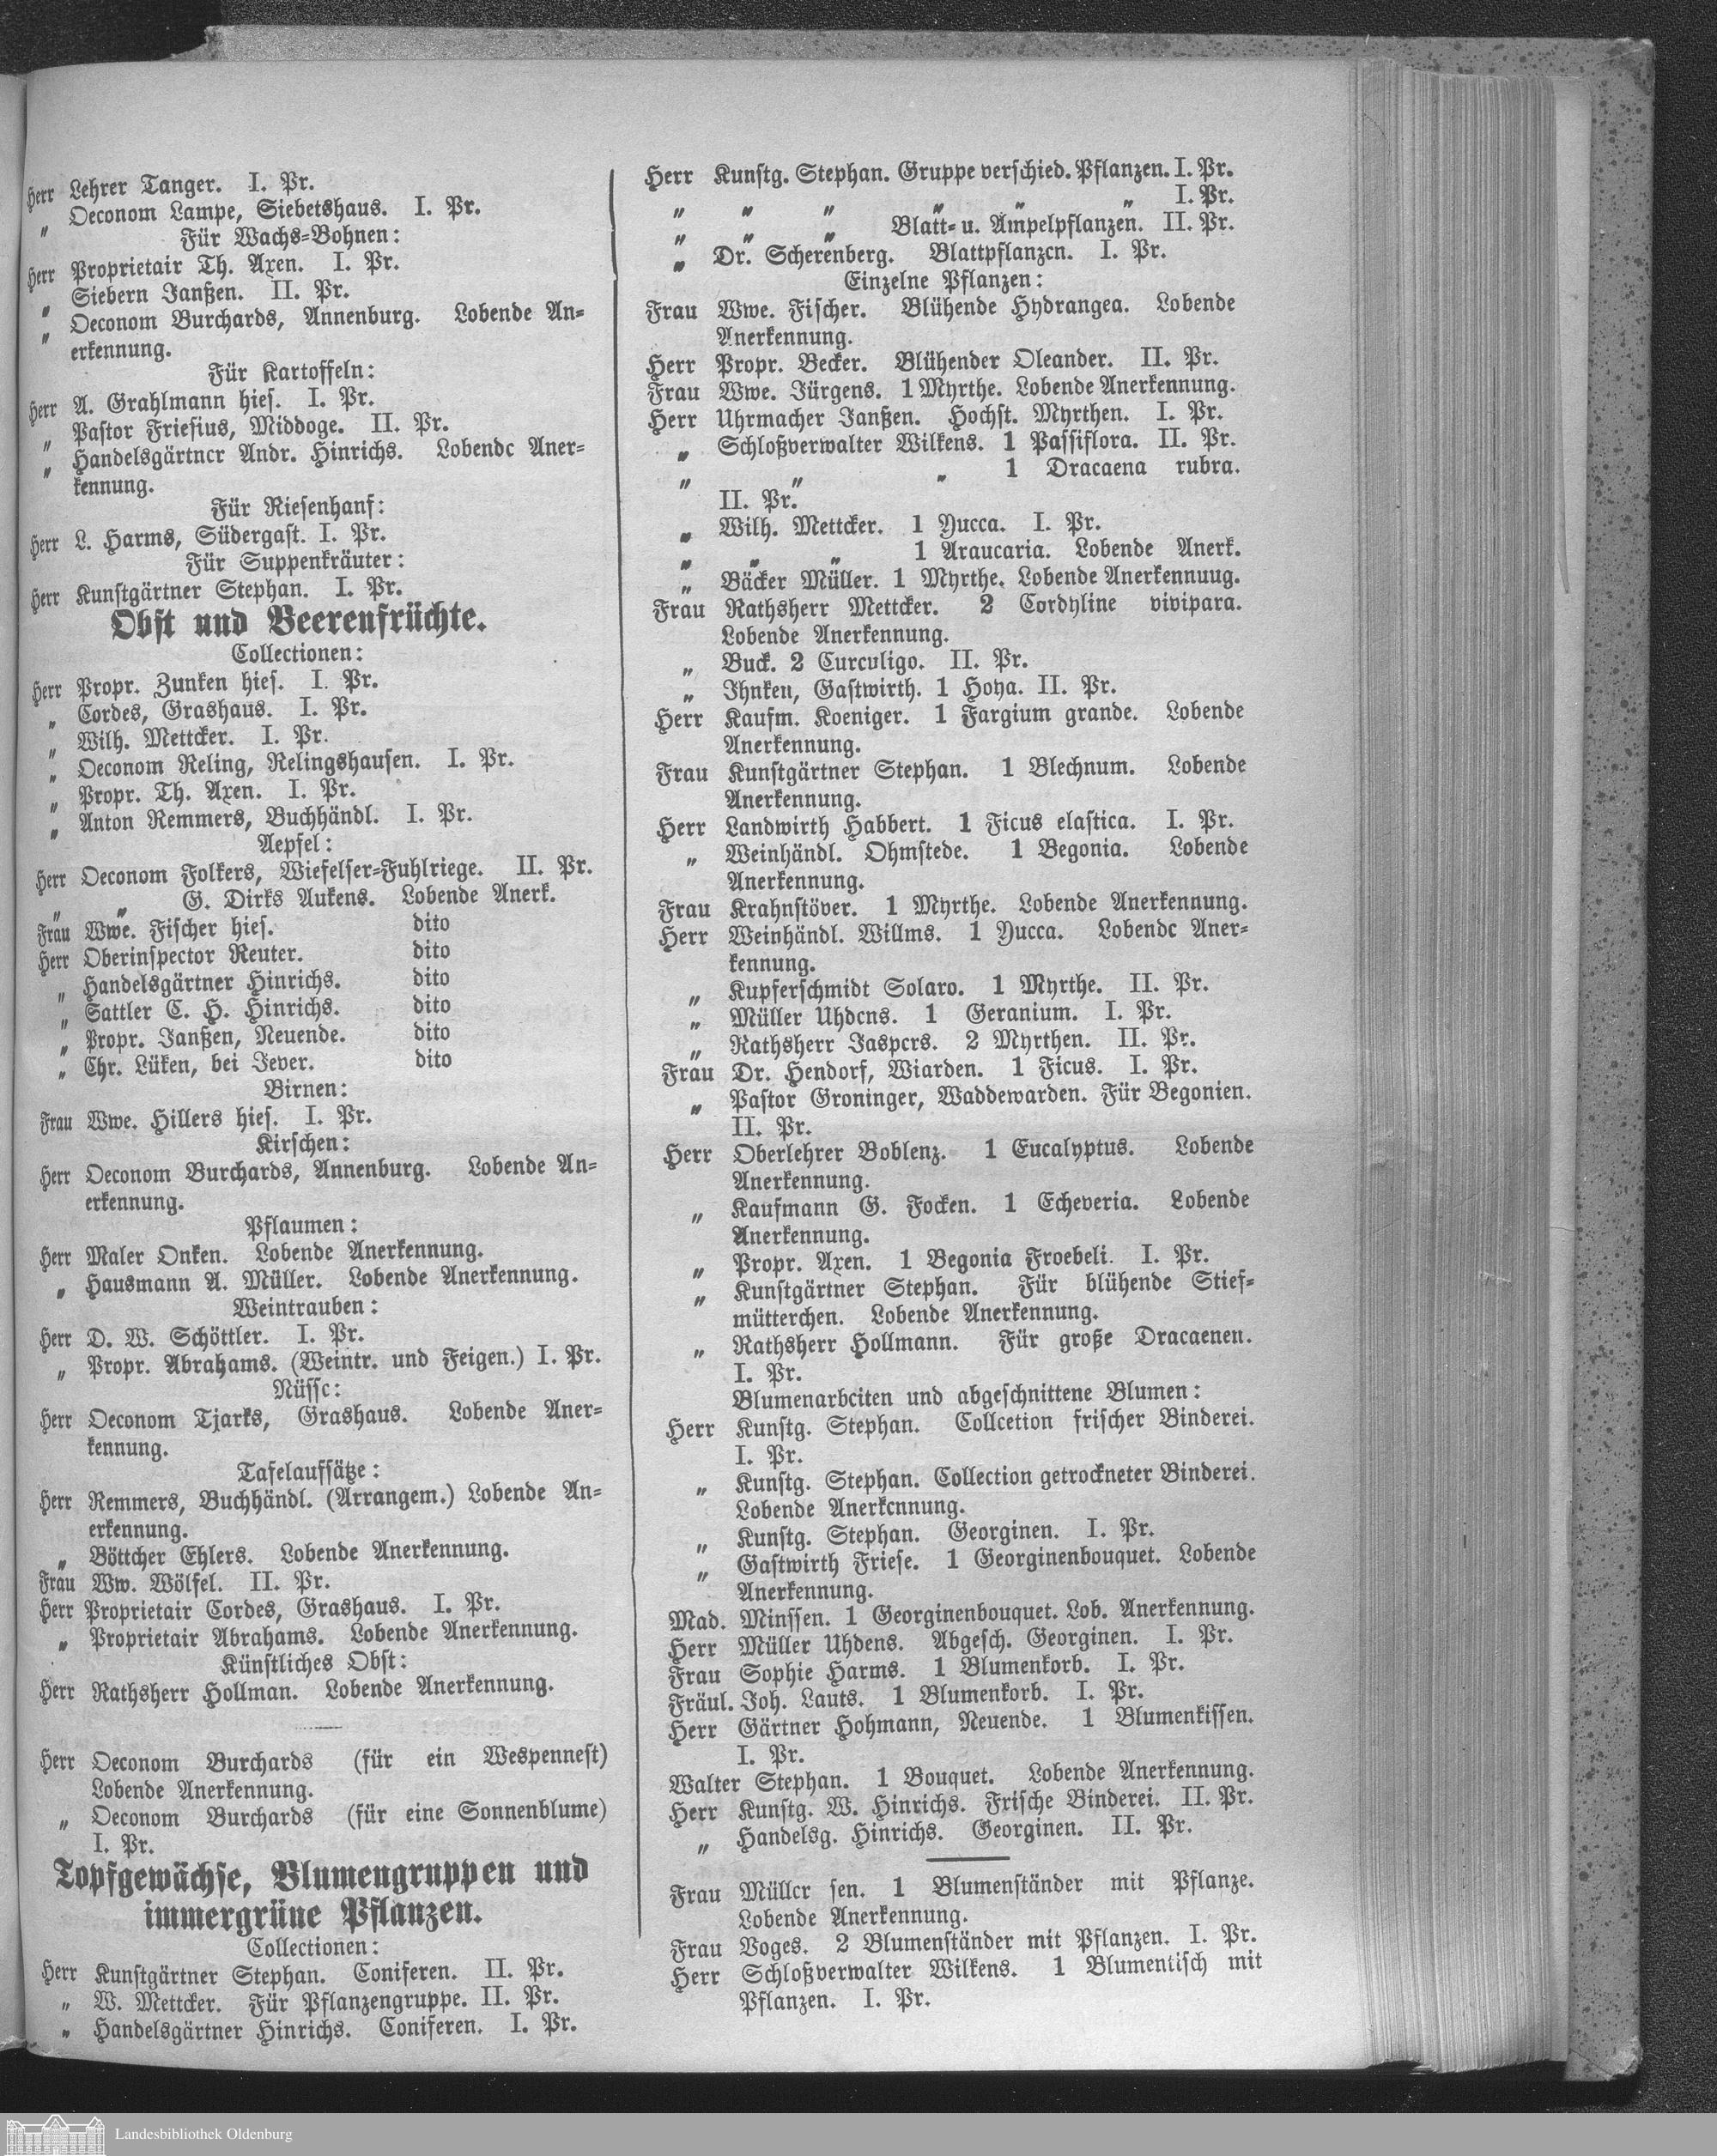 Herr Lehrer Tanger. I. Pr.
„ Oeconom Lampe, Siebetshaus. I. Pr.
Für Wachs-Bohnen:
Herr Proprietair Th. Axen. I. Pr.
„ Siebern Janßen. II. Pr.
„ Oeconom Burchards, Annenburg. Lobende An-
erkennung.
Für Kartoffeln:
Herr A. Grahlmann hies. I. Pr.
„ Pastor Friesius, Middoge. II. Pr.
„ Handelsgärtner Andr. Hinrichs. Lobende Aner-
kennung.
Für Riesenhanf:
Herr L. Harms, Südergast. I. Pr.
Für Suppenkräuter:
Herr Kunstgärtner Stephan. I. Pr.
Obst und Beerenfrüchte.
Collectionen:
Herr Propr. Zunken hies. I. Pr.
„ Cordes, Grashaus. I. Pr.
„ Wilh. Mettcker. I. Pr.
„ Oeconom Reling, Relingshausen. I. Pr.
„ Propr. Th. Axen. I. Pr.
„ Anton Remmers, Buchhändl. I. Pr.
Aepfel:
Herr Oeconom Folkers, Wiefelser-Fuhlriege. II. Pr.
„ „ G. Dirks Aukens. Lobende Anerk.
Frau Wwe. Fischer hies. dito
Herr Oberinspector Reuter. dito
„ Handelsgärtner Hinrichs. dito
„ Sattler C. H. Hinrichs. dito
„ Propr. Janßen, Neuende. dito
„ Chr. Lüken, bei Jever. dito
Birnen:
Frau Wwe. Hillers hies. I. Pr.
Kirschen:
Herr Oeconom Burchards, Annenburg. Lobende An-
erkennung.
Pflaumen:
Herr Maler Onken. Lobende Anerkennung.
„ Hausmann A. Müller. Lobende Anerkennung.
Weintrauben:
Herr D. W. Schöttler. I. Pr.
„ Propr. Abrahams. (Weintr. und Feigen.) I. Pr.
Nüsse:
Herr Oeconom Tjarks, Grashaus. Lobende Aner-
kennung.
Tafelaufsätze:
Herr Remmers, Buchhändl. (Arrangem.) Lobende An-
erkennung.
„ Böttcher Ehlers. Lobende Anerkennung.
Frau Ww. Wölfel. II. Pr.
Herr Proprietair Cordes, Grashaus. I. Pr.
„ Proprietair Abrahams. Lobende Anerkennung.
Künstliches Obst:
Herr Rathsherr Hollman. Lobende Anerkennung.
Herr Oeconom Burchards (für ein Wespennest)
Lobende Anerkennung.
„ Oeconom Burchards (für eine Sonnenblume)
I. Pr.
Topfgewächse, Blumengruppen und
immergrüne Pflanzen.
Collectionen:
Herr Kunstgärtner Stephan. Coniferen. II. Pr.
„ W. Mettcker. Für Pflanzengruppe. II. Pr.
„ Handelsgärtner Hinrichs. Coniferen. I. Pr.
Herr Kunstg. Stephan. Gruppe verschied. Pflanzen. I. Pr.
„ „ „ „ „ „ I. Pr.
„ „ „ Blatt- u. Ampelpflanzen. II. Pr.
„ Dr. Scherenberg. Blattpflanzen. I. Pr.
Einzelne Pflanzen:
Frau Wwe. Fischer. Blühende Hydrangea. Lobende
Anerkennung.
Herr Propr. Becker. Blühender Oleander. II. Pr.
Frau Wwe. Jürgens. 1 Myrthe. Lobende Anerkennung.
Herr Uhrmacher Janßen. Hochst. Myrthen. I. Pr.
„ Schloßverwalter Wilkens. 1 Passiflora. II. Pr.
„ „ „ 1 Dracaena rubra.
II. Pr.
„ Wilh. Mettcker. 1 Yucca. I. Pr.
„ „ „ 1 Araucaria. Lobende Anerk.
„ Bäcker Müller. 1 Myrthe. Lobende Anerkennuug.
Frau Rathsherr Mettcker. 2 Cordyline vivipara.
Lobende Anerkennung.
„ Buck. 2 Curculigo. II. Pr.
„ Ihnken, Gastwirth. 1 Hoya. II. Pr.
Herr Kaufm. Koeniger. 1 Fargium grande. Lobende
Anerkennung.
Frau Kunstgärtner Stephan. 1 Blechnum. Lobende
Anerkennung.
Herr Landwirth Habbert. 1 Ficus elastica. I. Pr.
„ Weinhändl. Ohmstede. 1 Begonia. Lobende
Anerkennung.
Frau Krahnstöver. 1 Myrthe. Lobende Anerkennung.
Herr Weinhändl. Willms. 1 Yucca. Lobende Aner-
kennung.
„ Kupferschmidt Solaro. 1 Myrthe. II. Pr.
„ Müller Uhdens. 1 Geranium. I. Pr.
„ Rathsherr Jaspers. 2 Myrthen. II. Pr.
Frau Dr. Hendorf, Wiarden. 1 Ficus. I. Pr.
„ Pastor Groninger, Waddewarden. Für Begonien.
II. Pr.
Herr Oberlehrer Boblenz. 1 Eucalyptus. Lobende
Anerkennung.
„ Kaufmann G. Focken. 1 Echeveria. Lobende
Anerkennung.
„ Propr. Axen. 1 Begonia Froebeli. I. Pr.
„ Kunstgärtner Stephan. Für blühende Stief-
mütterchen. Lobende Anerkennung.
„ Rathsherr Hollmann. Für große Dracaenen.
I. Pr.
Blumenarbeiten und abgeschnittene Blumen:
Herr Kunstg. Stephan. Collcetion frischer Binderei.
I. Pr.
„ Kunstg. Stephan. Collection getrockneter Binderei.
Lobende Anerkennung.
„ Kunstg. Stephan. Georginen. I. Pr.
„ Gastwirth Friese. 1 Georginenbouquet. Lobende
Anerkennung.
Mad. Minssen. 1 Georginenbouquet. Lob. Anerkennung.
Herr Müller Uhdens. Abgesch. Georginen. I. Pr.
Frau Sophie Harms. 1 Blumenkorb. I. Pr.
Fräul. Joh. Lauts. 1 Blumenkorb. I. Pr.
Herr Gärtner Hohmann, Neuende. 1 Blumenkissen.
I. Pr.
Walter Stephan. 1 Bouquet. Lobende Anerkennung.
Herr Kunstg. W. Hinrichs. Frische Binderei. II. Pr.
„ Handelsg. Hinrichs. Georginen. II. Pr.
Frau Müller sen. 1 Blumenständer mit Pflanze.
Lobende Anerkennung.
Frau Voges. 2 Blumenständer mit Pflanzen. I. Pr.
Herr Schloßverwalter Wilkens. 1 Blumentisch mit
Pflanzen. I. Pr.
Landesbibliothek Oldenburg